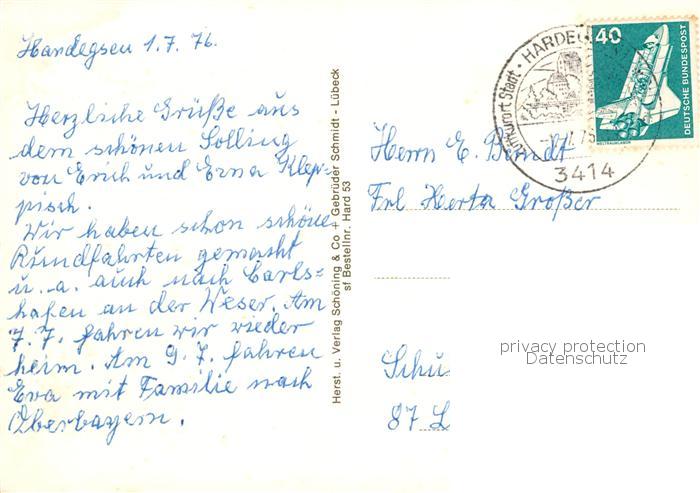 Hardegsen 1.7. 76.
Herzliche Grüße aus
dem schönen Solling
von Erich und Erna Klep=
pisch.
Wir haben schon schöne
Rundfahrten gemacht
u. a. auch nach Carls=
hafen an der Weser. Am
7. 7. fahren wir wieder
heim. Am 9. 7. fahren
Eva mit Familie nach
Oberbayern.
Herst. u. Verlag Schöning & Co + Gebrüder Schmidt - Lübeck
sf Bestellnr. Hard 53
Stadt · HARDE
3414
40
DEUTSCHE BUNDESPOST
WELTRAUMLABOR
Herrn E. Berndt
Frl Herta Großer
privacy protection
Datenschutz
Schu
87 L